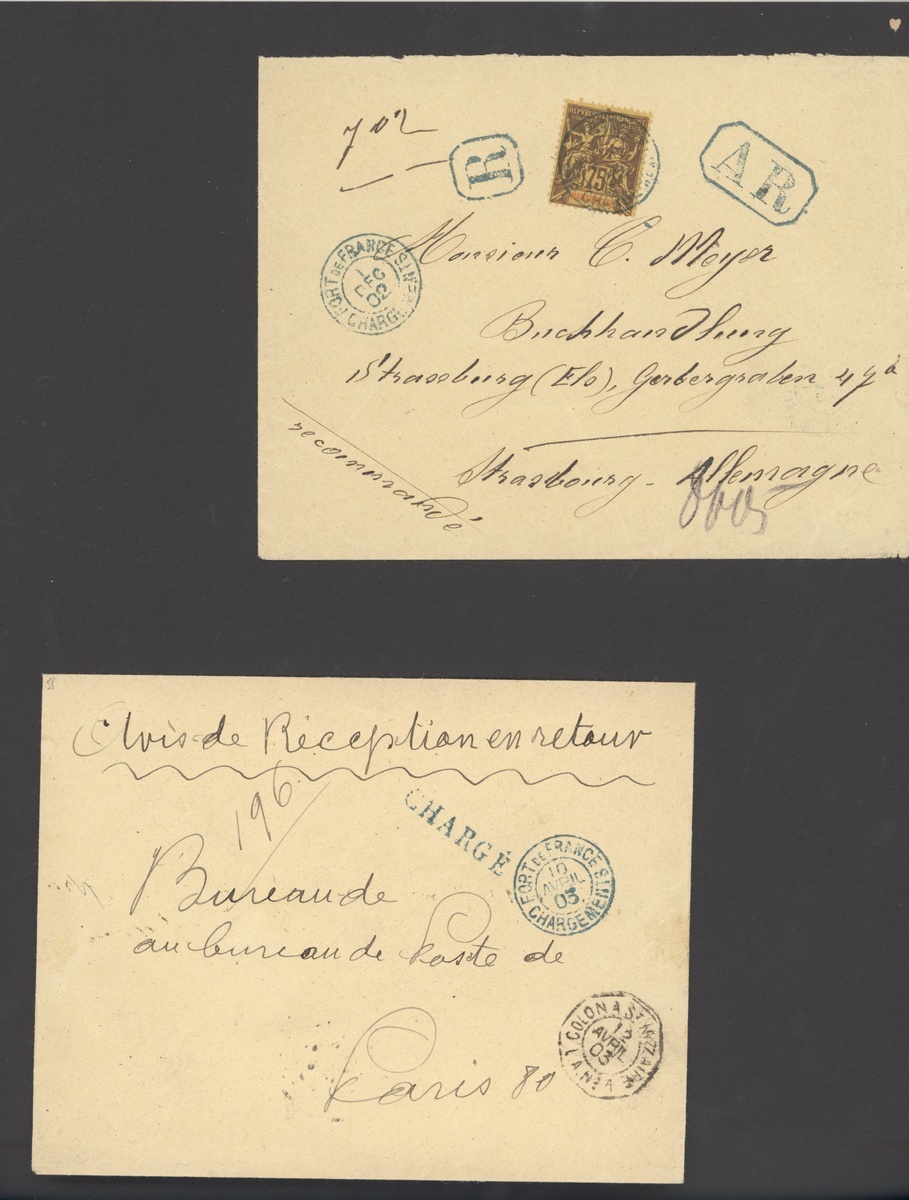 702
R
REPUBLIQUE FRANCAISE
75
AR
FORT DE FRANCE
1
DEC
02
CHARGEMENTS
Monsieur C. Meyer
Buchhandlung
Strassburg (Els), Gerbergraben 47a
recommandé
Strasbourg - Allemagne
Avis de Réception en retour
196
CHARGÉ
FORT DE FRANCE
10
AVRIL
03
CHARGEMENTS
Bureau de
au bureau de Poste de
Paris 80
COLON A ST NAZAIRE
13
AVRIL
03
L.A. N° 4